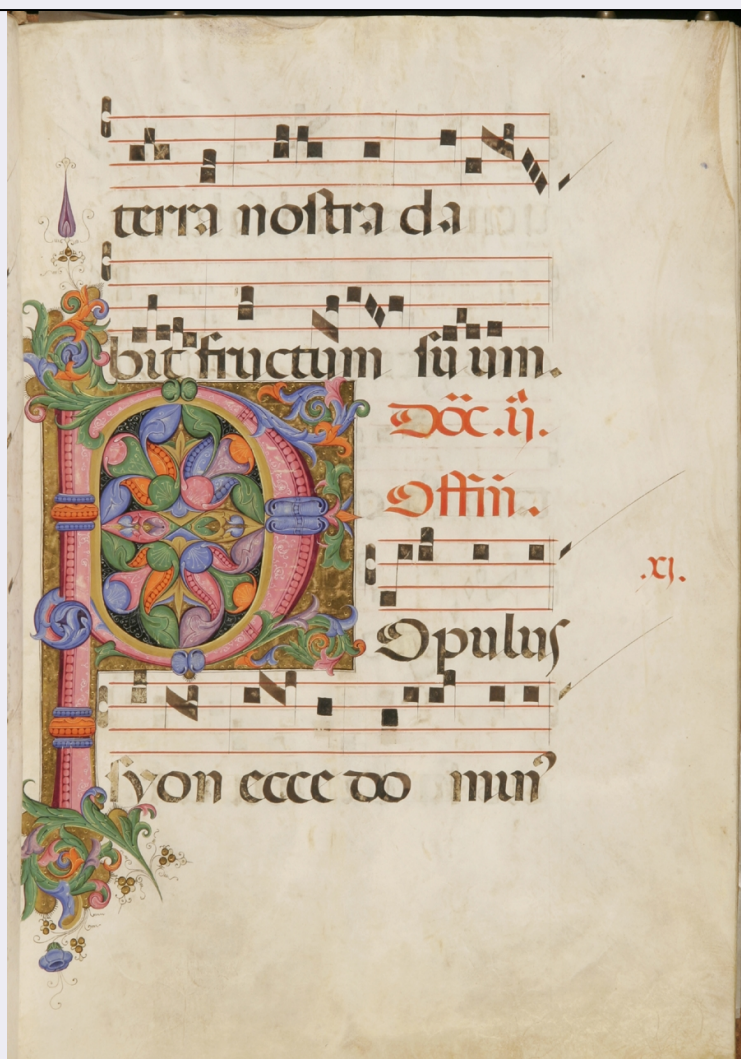 terra nostra da
bit fructum su um.
Dōc .ij.
Offiñ.
.xj.
Populus
syon ecce do min⁹